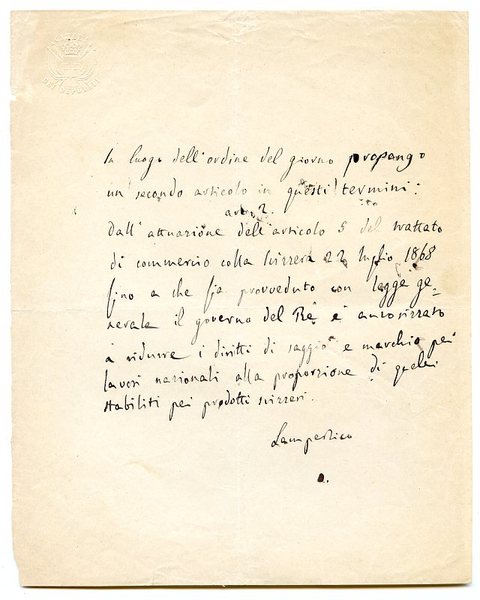 DEI DEPUTATI
In luogo dell'ordine del giorno propango
un secondo articolo in questi termini:
art. 2.
Dall'attuazione dell'articolo 5 del trattato
di commercio colla Svizzera 22 luglio 1868
fino a che sia provveduto con legge ge-
nerale il governo del Re è autorizzato
a ridurre i diritti di saggio e marchio pei
lavori nazionali alla proporzione di quelli
stabiliti pei prodotti svizzeri.
Lampertico